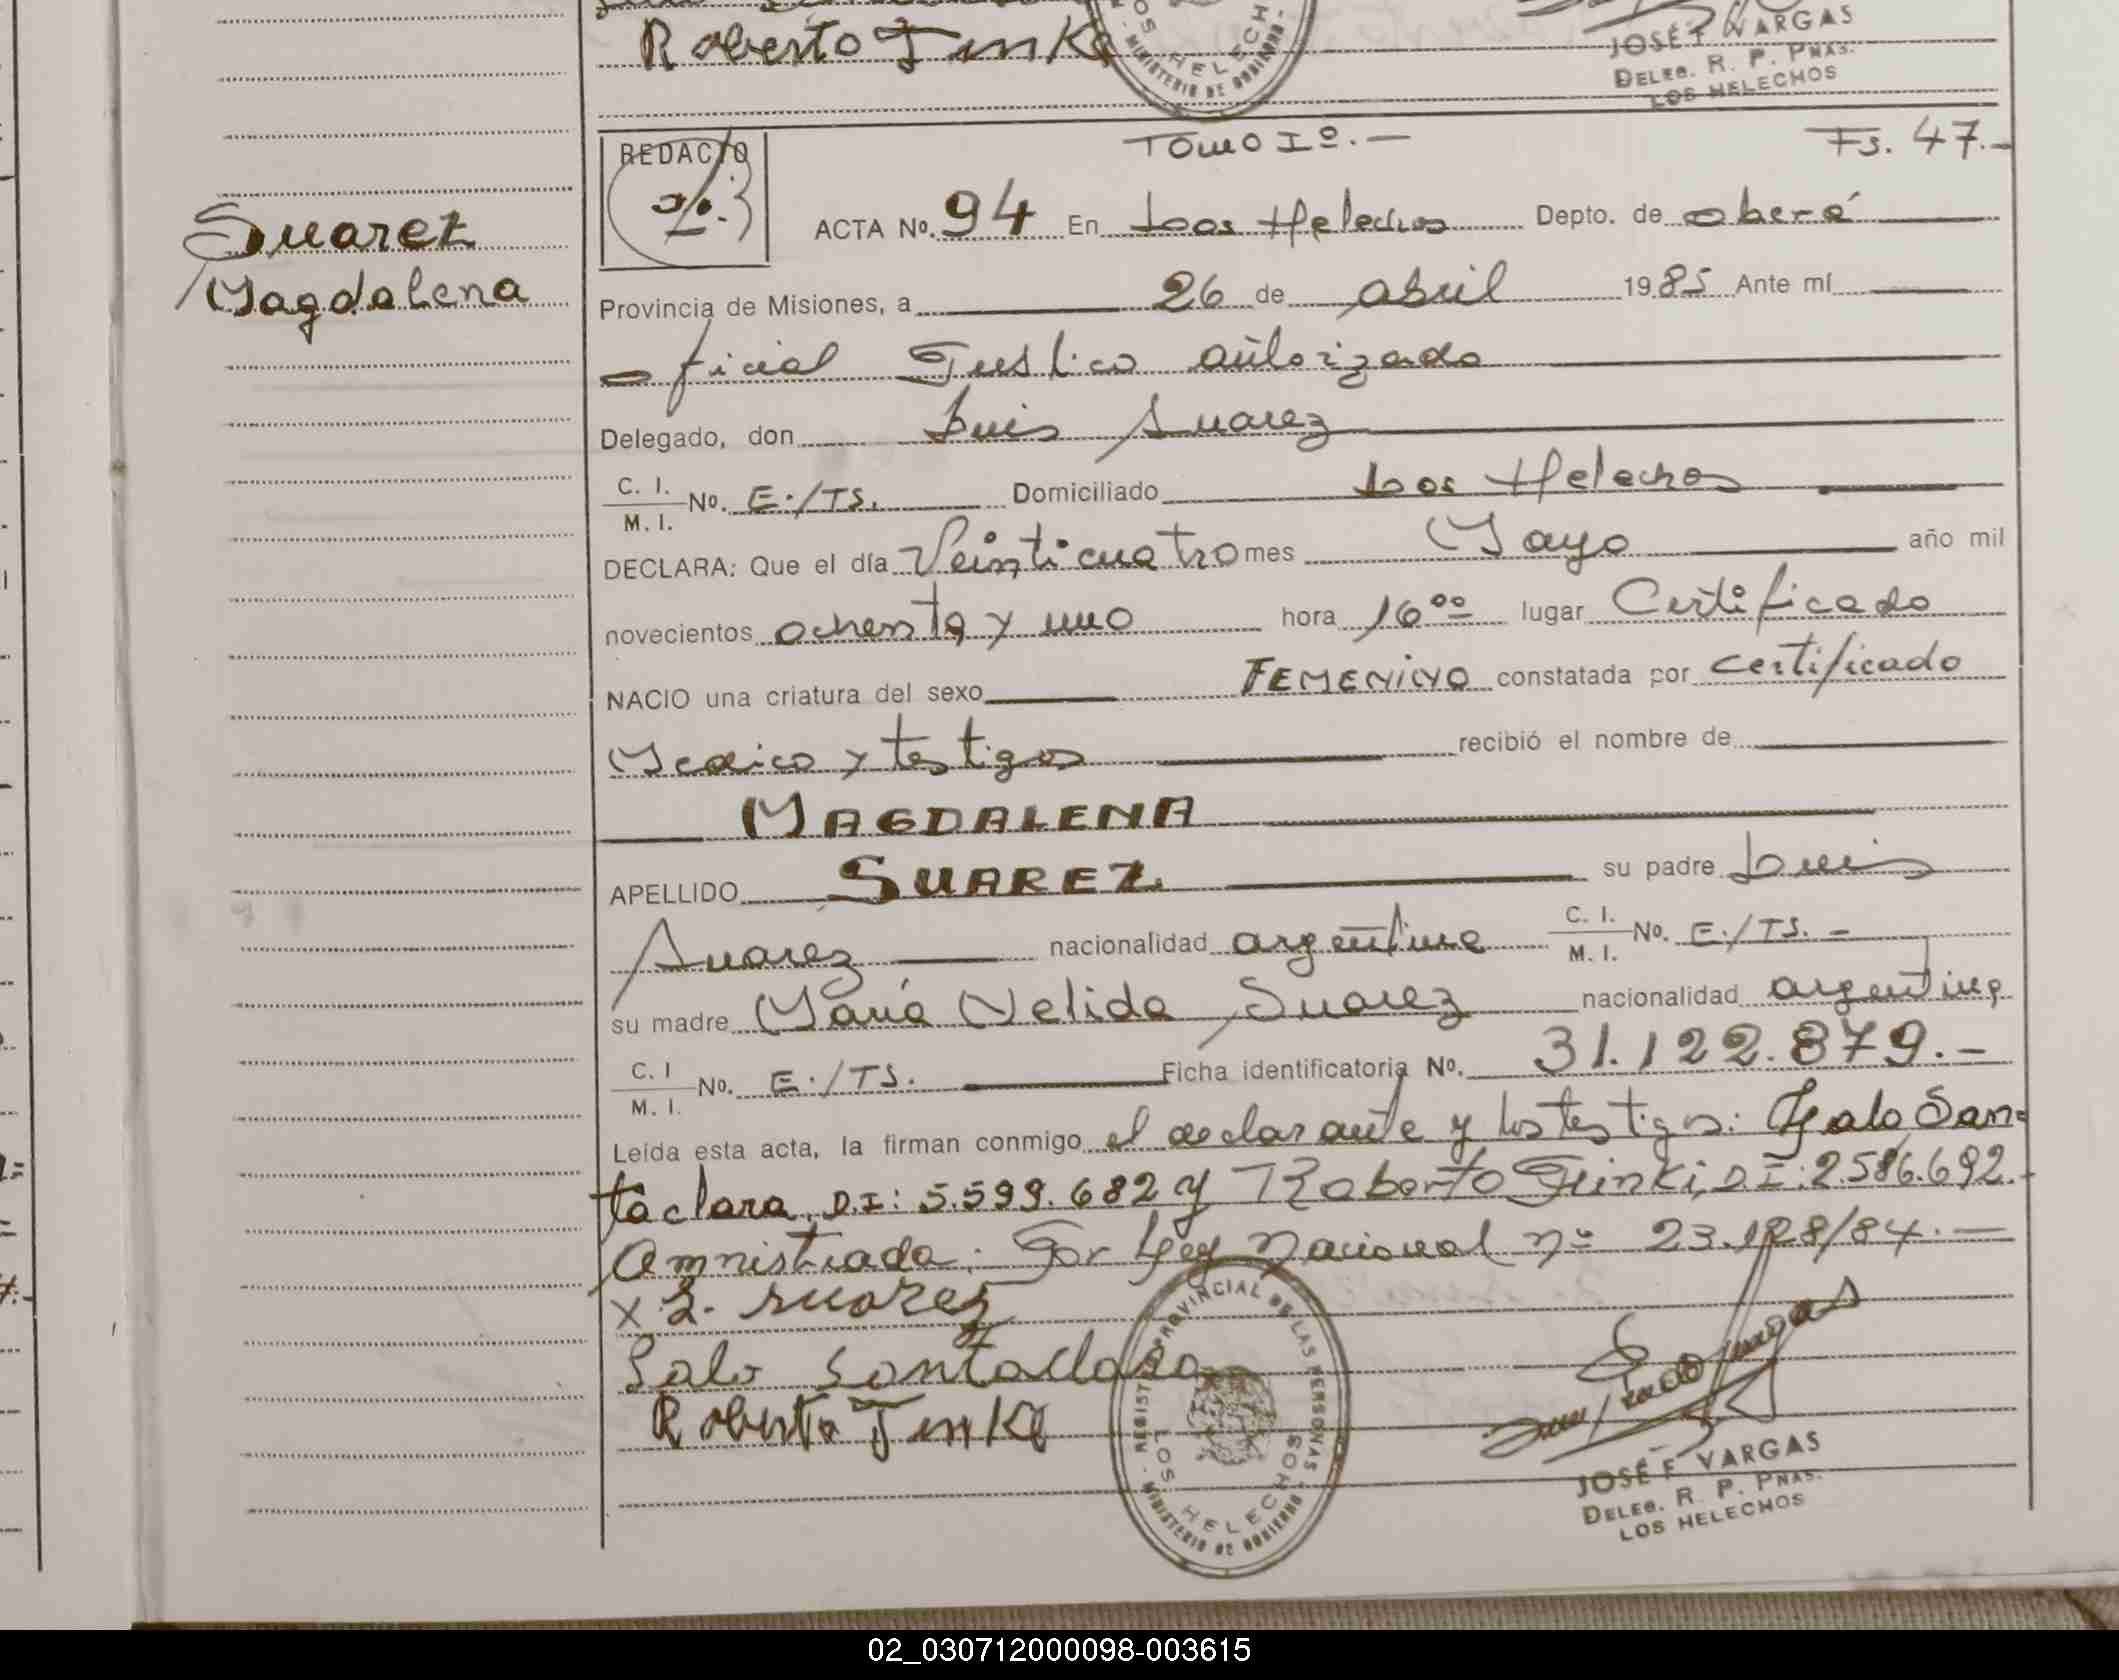 Roberto
MINISTERIO DE GOBIERNO
LOS HELECHOS
JOSÉ F. VARGAS
DELEG. R. P. PNAS.
LOS HELECHOS
REDACTO
Tomo Iº.- Fs. 47.-
Suarez
Magdalena
ACTA No. 94 En Los Helechos Depto. de oberá
Provincia de Misiones, a 26 de abril 1985 Ante mí
oficial Publico autorizado
Delegado, don Luis Suarez
C. I. / M. I. No. E./TS. Domiciliado Los Helechos
DECLARA: Que el día Veinticuatro mes Mayo año mil
novecientos ochenta y uno hora 16 00 lugar Certificado
NACIO una criatura del sexo FEMENINO constatada por certificado
Medico y testigos recibió el nombre de
MAGDALENA
APELLIDO SUAREZ su padre Luis
Suarez nacionalidad argentina C. I. / M. I. No. E./TS. -
su madre María Nelida Suarez nacionalidad argentina
C. I / M. I. No. E./TS. Ficha identificatoria No. 31.122.879.-
Leída esta acta, la firman conmigo el declarante y los testigos: Galo San=
taclara, D.I: 5.599.682 y Roberto D.I: 2.586.692.-
Amnistiada: Por Ley Nacional nº 23.128/84.-
x L. suarez
Galo Santaclara
Roberto
REGISTRO PROVINCIAL DE LAS PERSONAS
MINISTERIO DE GOBIERNO
LOS HELECHOS
JOSÉ F. VARGAS
DELEG. R. P. PNAS.
LOS HELECHOS
02_030712000098-003615